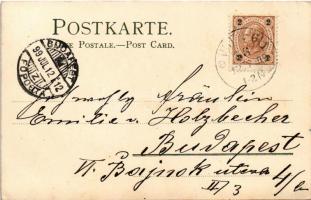 POSTKARTE.
CARTE POSTALE.—POST CARD.
2 2
BUDAPEST
99 JUL. 12
FŐPOSTA
Fräulein
Emilie v. Holzbecher
Budapest
VI. Bajnok utcza 4/b
II/3